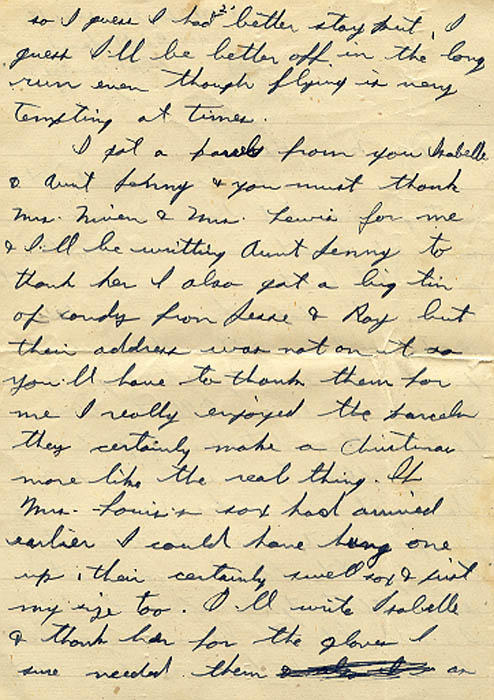 -3-
so I guess I had better stay put, I
guess I'll be better off in the long
run even though flying is very
tempting at times.
I got a parcel from you Isabelle
& Aunt Jenny & you must thank
Mrs. Niven & Mrs. Lewis for me
& I'll be writting Aunt Jenny to
thank her I also got a big tin
of candy from Jesse & Ray but
their address was not on it so
you'll have to thank them for
me I really enjoyed the parcels
they certainly make a Christmas
more like the real thing. If
Mrs. Louis's sox had arrived
earlier I could have hung one
up, their certainly swell sox & just
my size too. I'll write Isabelle
& thank her for the gloves I
sure needed them as